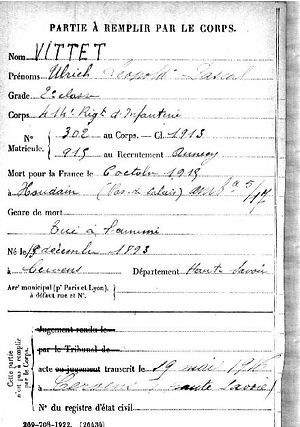 PARTIE À REMPLIR PAR LE CORPS.
Nom VITTET
Prénoms Ulrich Léopold Pascal
Grade 2e classe
Corps Rigt d'Infanterie
N° 302 au Corps. — Cl. 1913
Matricule. 915 au Recrutement Annecy
Mort pour la France le 6 octobre 1915
à Houdain (Pas-de-Calais)
Genre de mort
Tué à l'ennemi
Né le décembre 1893
à Cervens Département Haute Savoie
Arr' municipal (p' Paris et Lyon),
à défaut rue et N°.
Cette partie
n'est pas à remplir
par le Corps.
Jugement rendu le
par le Tribunal de
acte ou jugement transcrit le 19 mai 1916
à Cervens Haute Savoie
N° du registre d'état civil
269-708-1922. (26434)